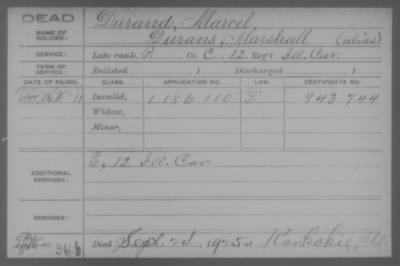 DEAD
NAME OF SOLDIER:
Durand, Marcel,
Durans, Marshall (alias)
SERVICE:
Late rank, P. Co. C, 12 Reg't Ill. Cav.
TERM OF SERVICE:
Enlisted , 1 Discharged , 1
DATE OF FILING. CLASS. APPLICATION NO. LAW. CERTIFICATE NO.
Invalid, 1186110 943744
Widow,
Minor,
ADDITIONAL SERVICES:
E, 12 Ill. Cav.
REMARKS:
Died Sept. 24, 1925 at Kankakee, Ill.